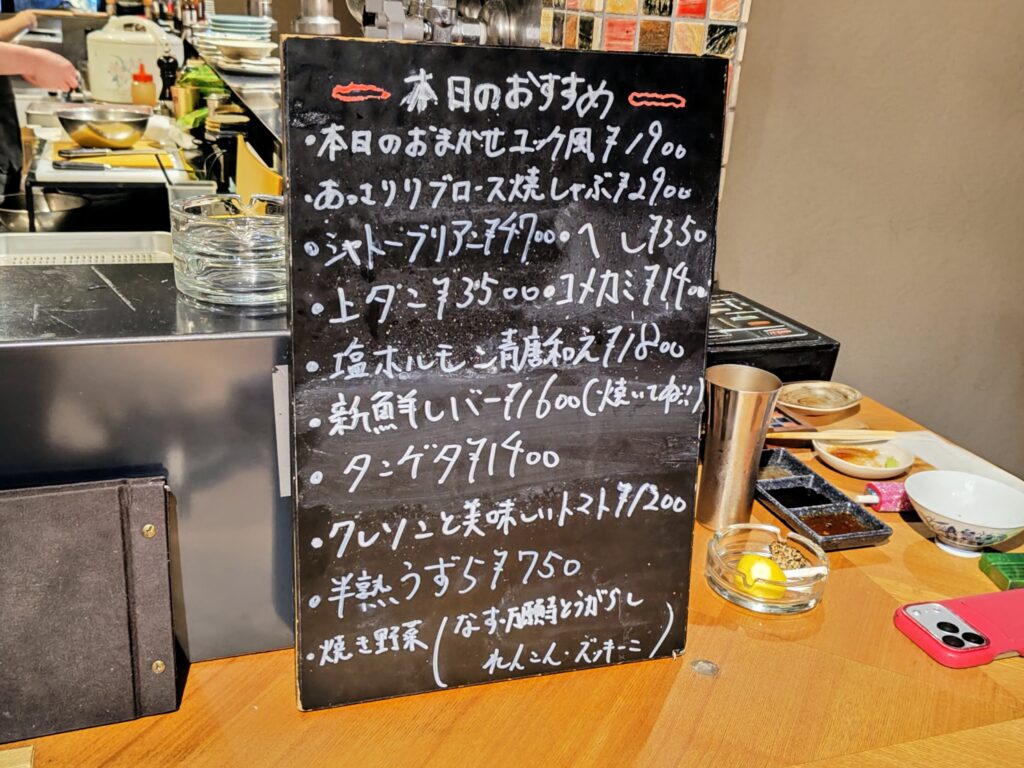 本日のおすすめ
・本日のおまかせユッケ風¥1900
・あっさりリブロース焼しゃぶ¥2900
・シャトーブリアン¥4700・へし¥350
・上タン¥3500・コメカミ¥1400
・塩ホルモン青唐和え¥1800
・新鮮レバー¥1600(焼いてね!!)
・タンゲタ¥1400
・クレソンと美味しいトマト¥1200
・半熟うずら¥750
・焼き野菜(なす・万願寺とうがらし
れんこん・ズッキーニ)